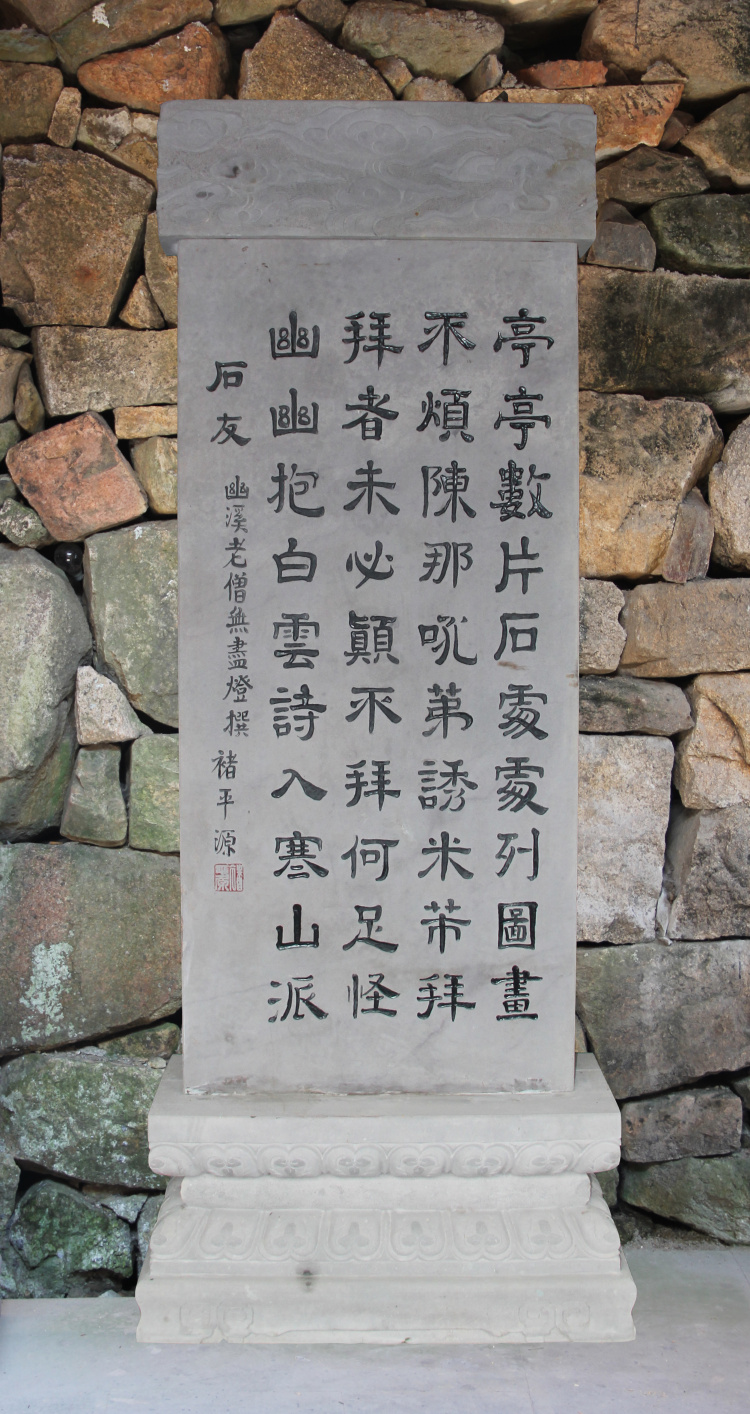 亭亭數片石處處列圖畫
不煩陳那吼苐誘米芾拜
拜者未必顛不拜何足怪
幽幽抱白雲詩入寒山派
石友 幽溪老僧無盡燈撰 褚平源